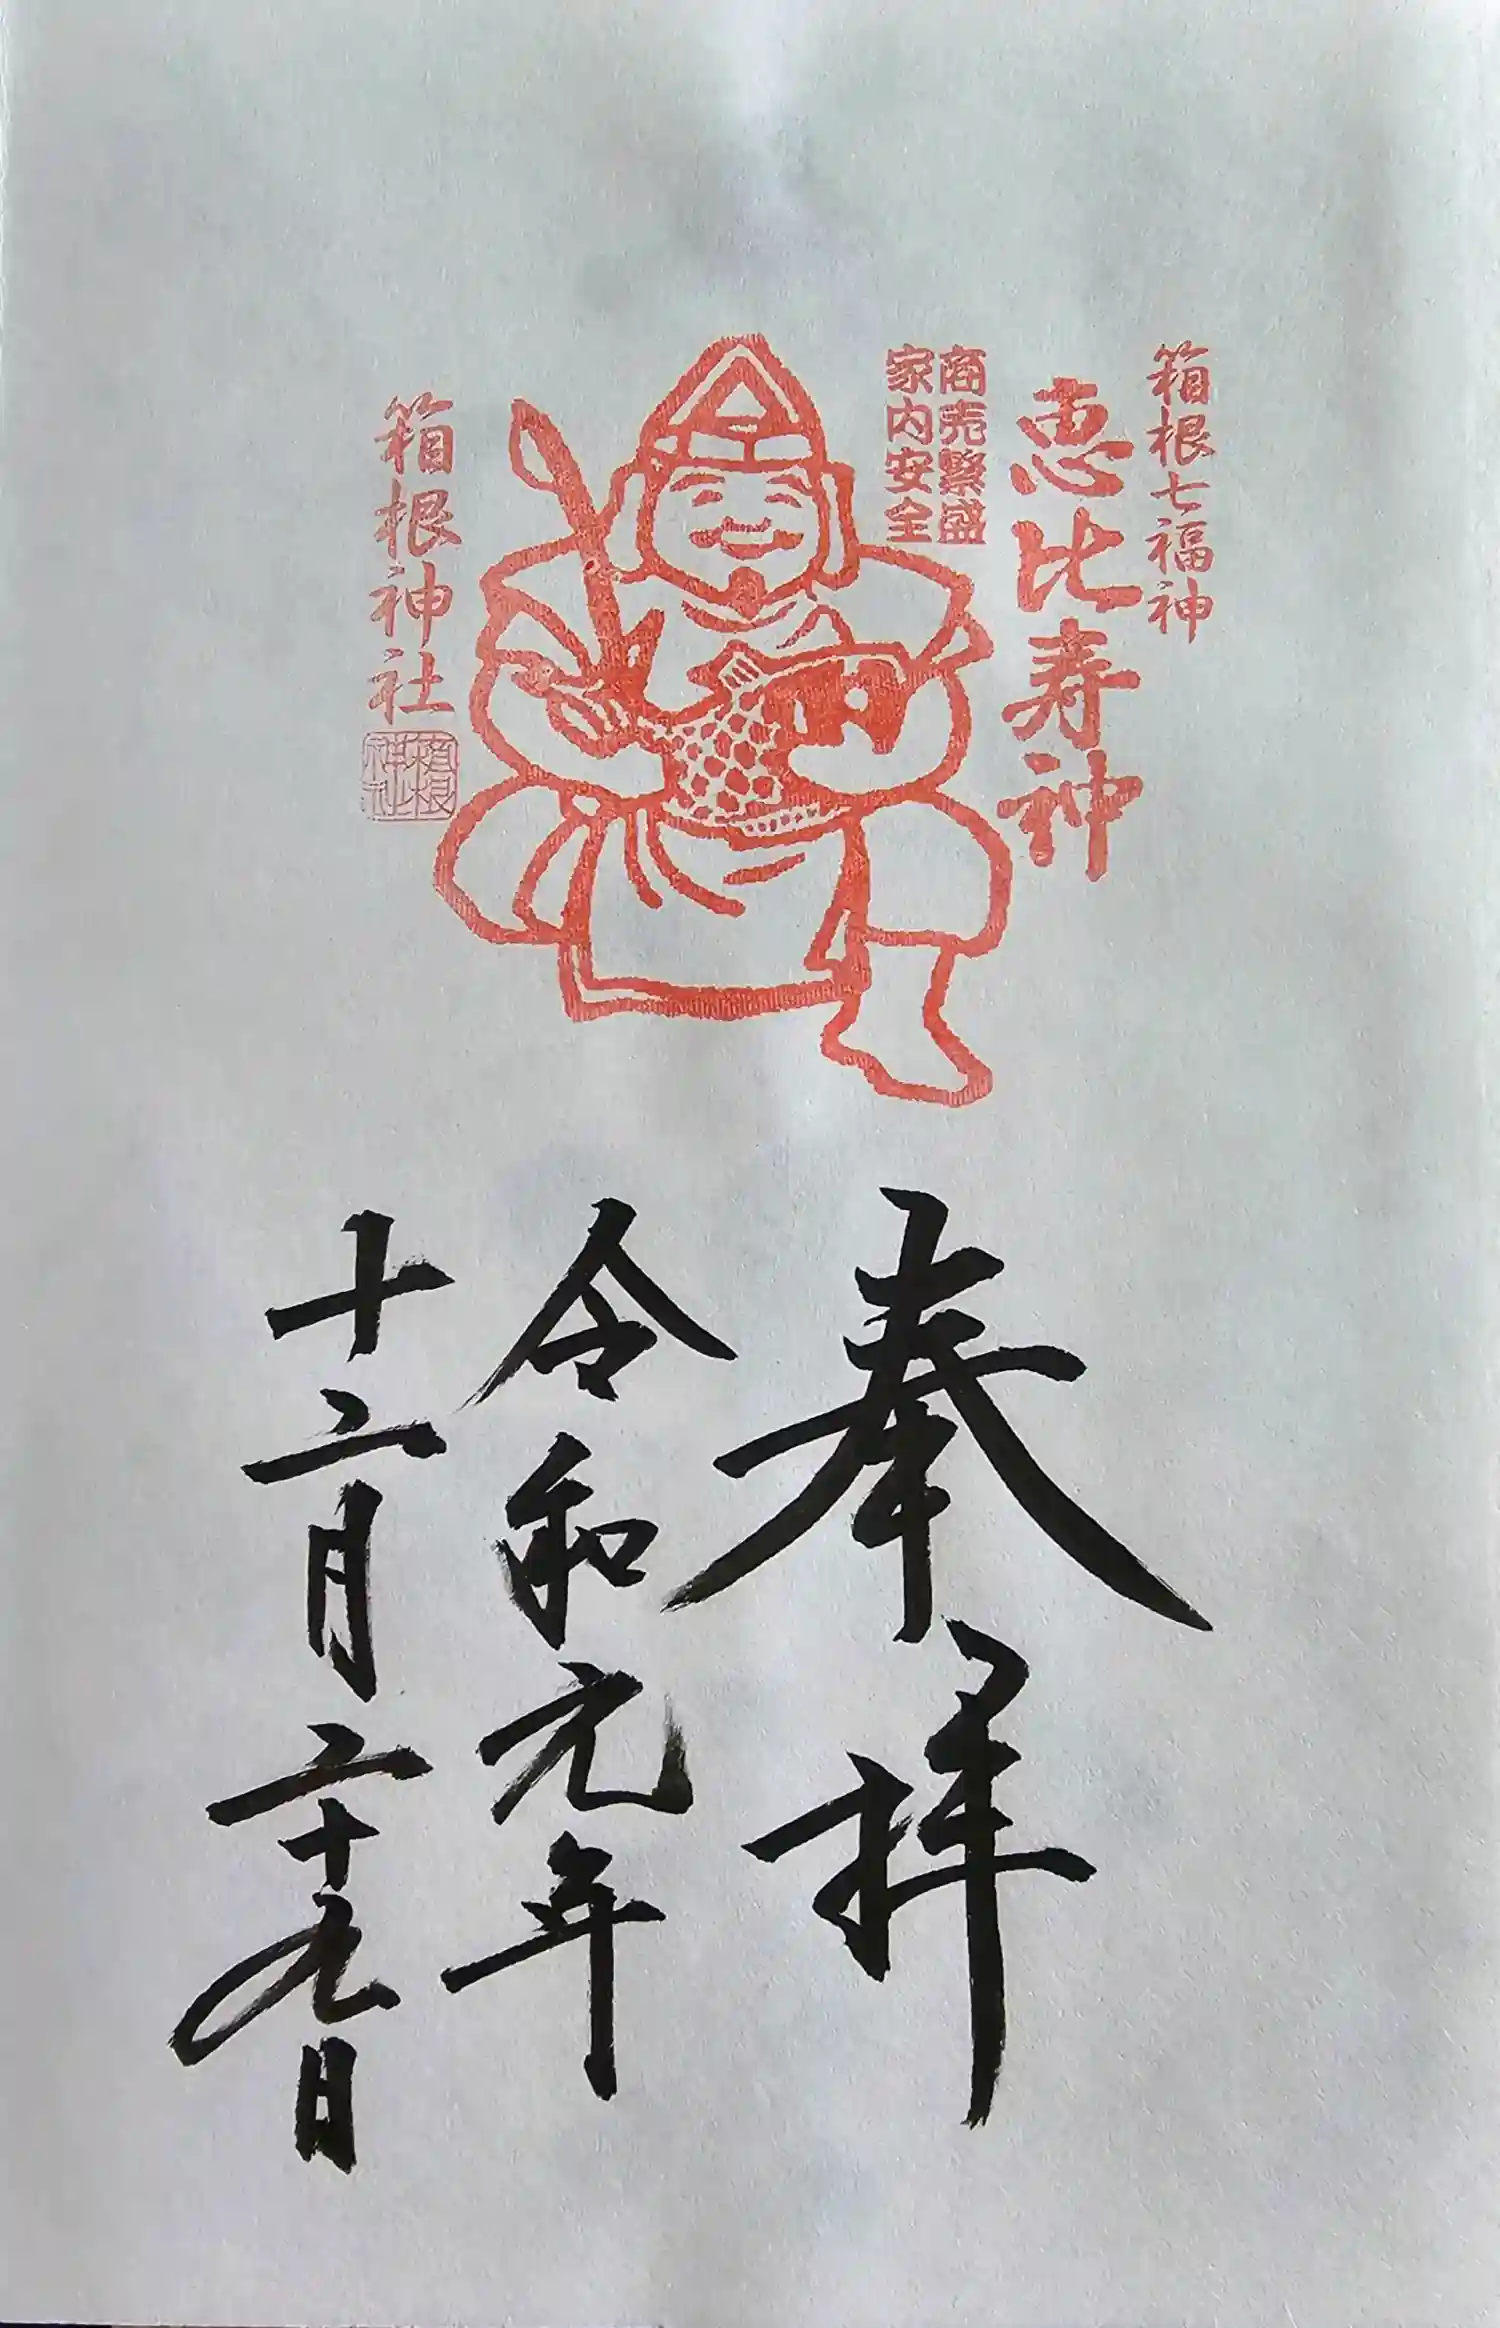 箱根七福神
恵比寿神
商売繁盛
家内安全
箱根神社
箱根
神社
奉拝
令和元年
十二月二十九日